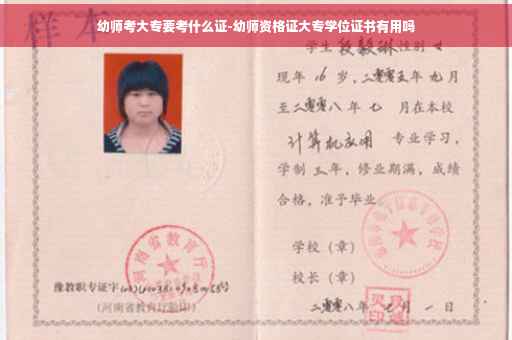 幼师考大专要考什么证-幼师资格证大专学位证书有用吗
样本
学生 段毅琳 性别 女
现年 16 岁,二零零五年 九月
至二零零八年 七 月在本校
计算机应用 专业学习,
学制 三 年,修业期满,成绩
合格,准予毕业
学校（章）
校长（章）
二零零八年 七 月 一 日
河南省教育厅
豫教职专证字
(河南省教育厅验印)